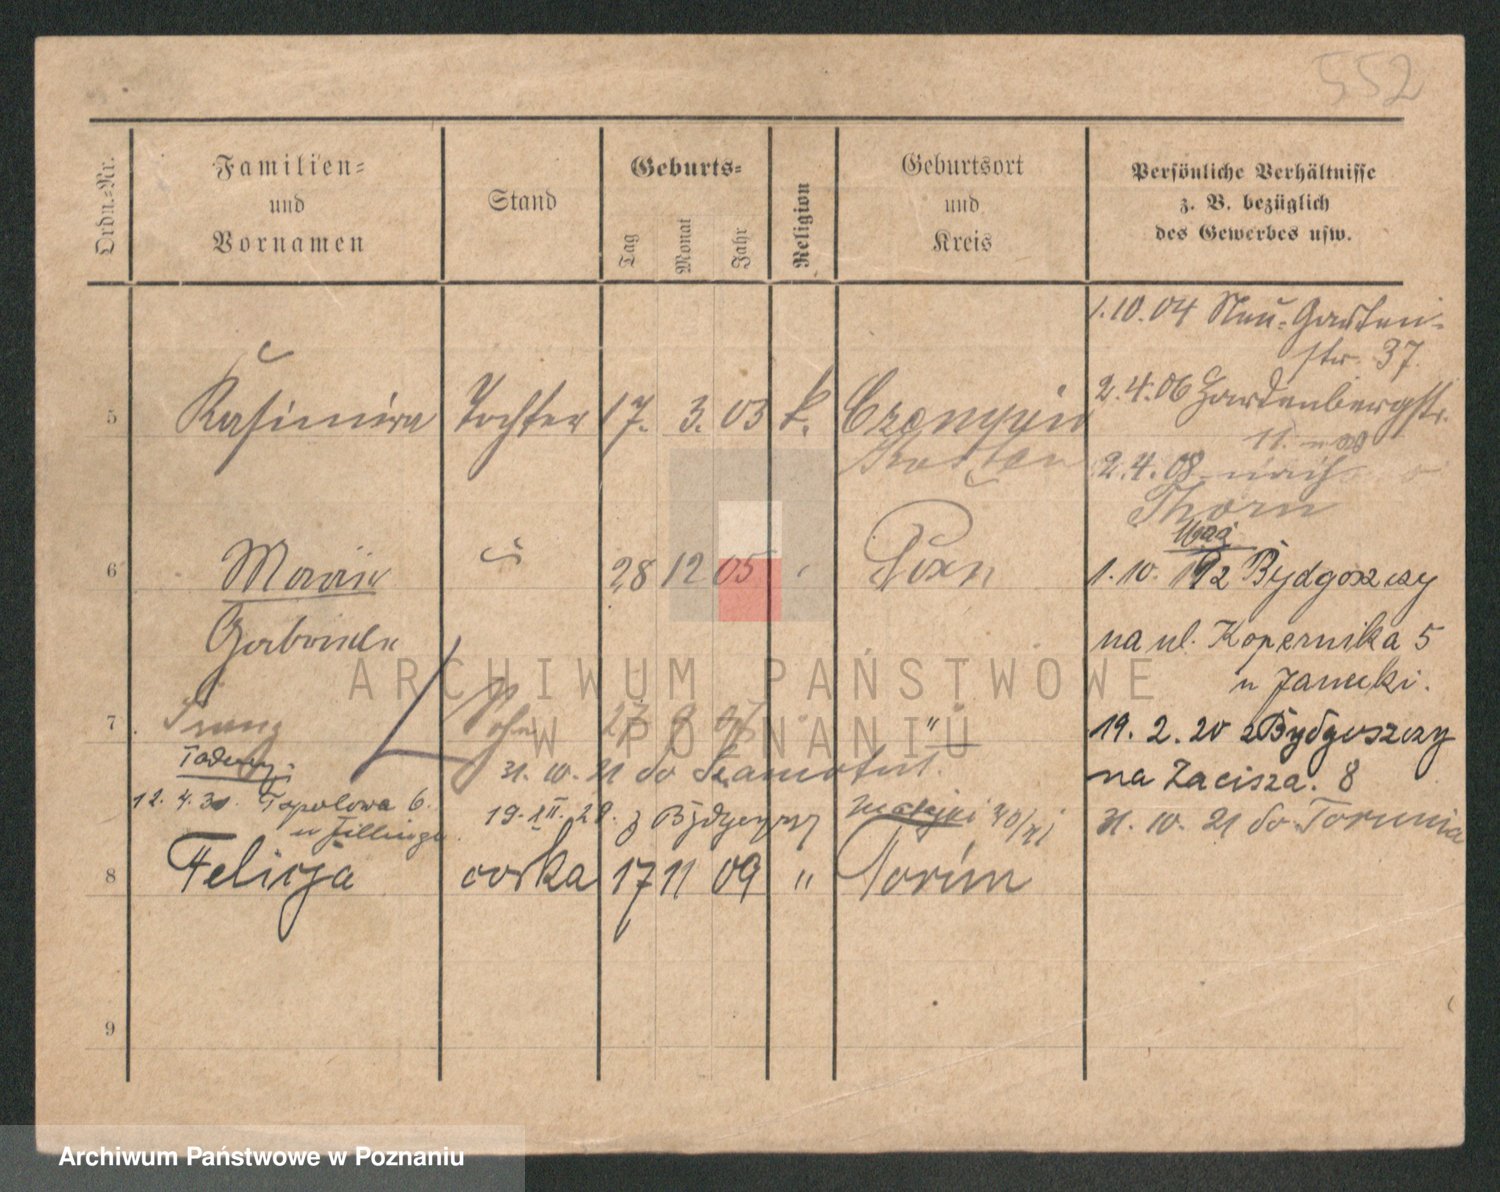 552
Ordn.-Nr.
Familien-
und
Vornamen
Stand
Geburts-
Tag
Monat
Jahr
Religion
Geburtsort
und
Kreis
Persönliche Verhältnisse
z. B. bezüglich
des Gewerbes usw.
1.10.04 Neu-Garten-
str. 37.
5 Kasimira Tochter 17. 3. 03 k. Czempin
Kosten
2.4.06 Hardenbergstr.
11.
2.4.08 nach
Thorn
6 Marie 28 12 05 Posen
Gabriele
1.10. Bydgoszczy
na ul. Kopernika 5
u Janecki.
7 Franz Sohn 27 8 07 "
19. 2. 20 z Bydgoszczy
na Zacisza. 8
31. 10. 21 do Szamotuł.
12. 4. 31. Topolowa 6.
19. XII. 28. z Bydgoszczy
Matejki 40/41
31. 10. 21 do Torunia
8 Felicja córka 17 11 09 " Toruń
9
ARCHIWUM PAŃSTWOWE
W POZNANIU
Archiwum Państwowe w Poznaniu